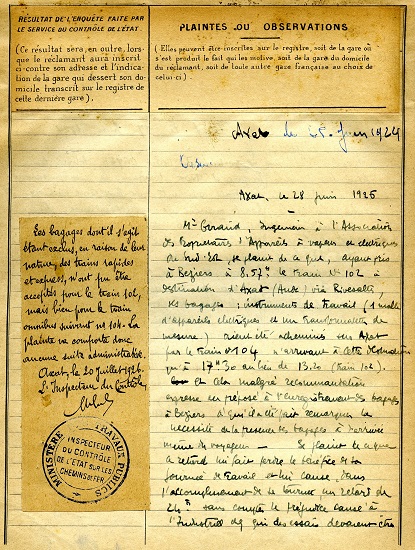 RÉSULTAT DE L'ENQUÊTE FAITE PAR
LE SERVICE DU CONTRÔLE DE L'ÉTAT
(Ce résultat sera, en outre, lors-
que le réclamant aura inscrit
ci-contre son adresse et l'indica-
tion de la gare qui dessert son do-
micile transcrit sur le registre de
cette dernière gare).
PLAINTES OU OBSERVATIONS
(Elles peuvent être inscrites sur le registre, soit de la gare où
s'est produit le fait qui les motive, soit de la gare du domicile
du réclamant, soit de toute autre gare française au choix de
celui-ci).
Axat le 28 Juin 1926
Axat, le 28 juin 1926
Mr Géraud, Ingénieur à l'Association
des Propriétaires d'Appareils à vapeur et électriques
du Midi se plaint de ce que, ayant pris
à Béziers à 8.57m le train No 102 à
destination d'Axat (Aude) via Rivesaltes,
ses bagages : instruments de travail (1 malle
d'appareils électriques et un transformateur de
mesure) aient été acheminés sur Axat
par le train No 104 n'arrivant à cette
qu'à 17h30 au lieu de 13.20 (train 102).
et cela malgré recommandation
expresse au préposé à l'enregistrement des bagages
à Béziers à qui il a été fait remarquer la
nécessité de la présence des bagages à l'arrivée
même du voyageur — Se plaint ce que
ce retard lui fait perdre le bénéfice de sa
journée de travail et lui cause, dans
l'accomplissement de sa tournée un retard de
24h sans compter le préjudice causé à
l'Industriel chez qui des essais devaient être
Les bagages dont il s'agit
étant exclus, en raison de leur
nature, des trains rapides
et express, n'ont pu être
acceptés pour le train 102,
mais bien pour le train
omnibus suivant no 104. La
plainte ne comporte donc
aucune suite administrative.
Axat, le 20 juillet 1926.
L'Inspecteur du Contrôle
MINISTÈRE TRAVAUX PUBLICS
INSPECTEUR
DU CONTRÔLE
DE L'ÉTAT SUR LES
CHEMINS DE FER